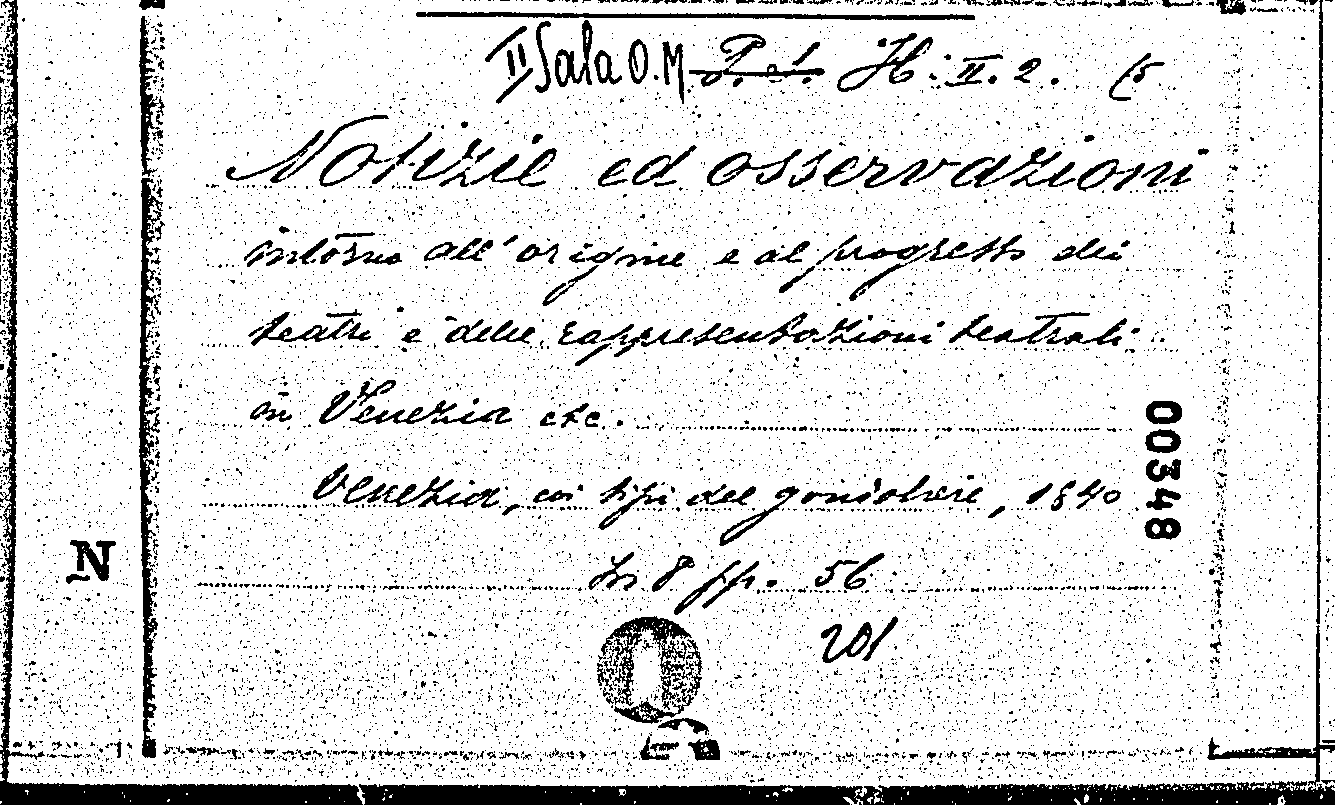 II Sala O.M P. I. H. II. 2. (5
Notizie ed osservazioni
intorno all'origine e al progresso dei
teatri e delle rappresentazioni teatrali
in Venezia etc.
Venezia, coi tipi del gondoliere, 1840
In 8 pp. 56
201
N
00348